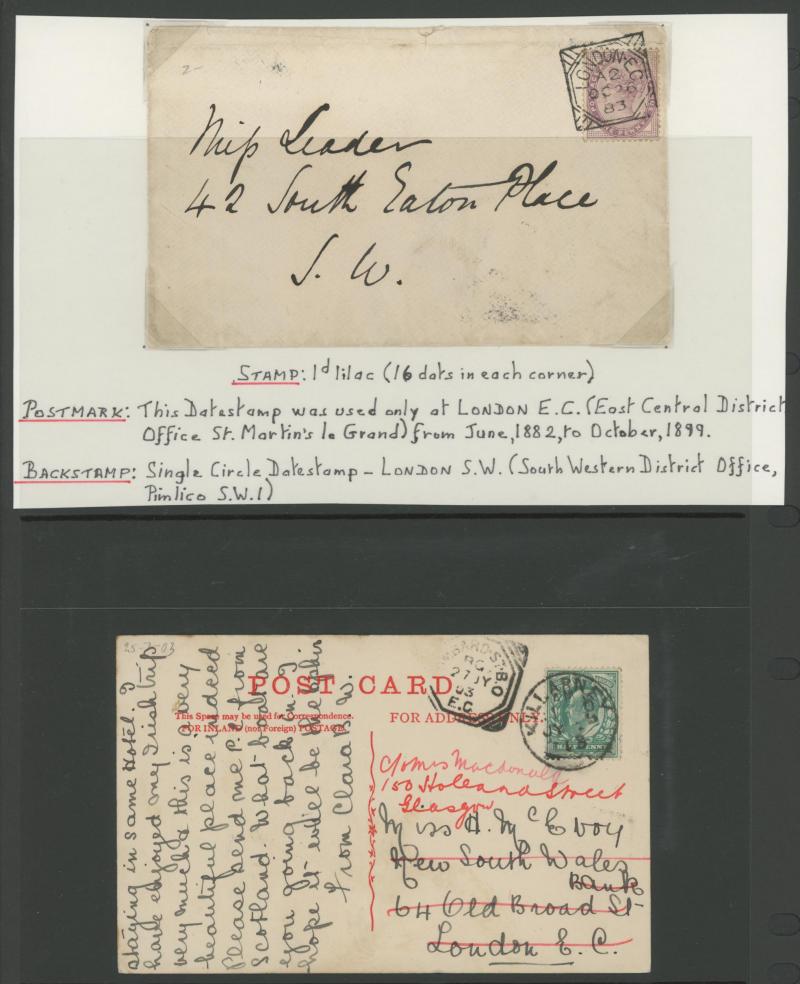 2-
LONDON·E.C.
A2
DE 26
83
Miss Leader
42 South Eaton Place
S. W.
STAMP: 1d lilac (16 dots in each corner)
POSTMARK: This Datestamp was used only at LONDON E.C. (East Central District
Office St. Martin's le Grand) from June, 1882, to October, 1899.
BACKSTAMP: Single Circle Datestamp – LONDON S.W. (South Western District Office,
Pimlico S.W.1)
25-7-03
staying in same Hotel. I
have enjoyed my Irish trip
very much & this is a very
beautiful place indeed
Please send me p.c. from
Scotland. What boat are
you going back in? I
hope it will be the
from Clara B. W.
POST CARD
This Space may be used for Correspondence.
(FOR INLAND (not Foreign) POSTAGE.)
FOR ADDRESS ONLY.
LOMBARD·ST·B.O
BG
27 JY
03
E.C
KILLARNEY
HALFPENNY
c/o Mrs Macdonald
150 Holland Street
Glasgow
Miss H. McEvoy
New South Wales
Bank
64 Old Broad St
London E. C.